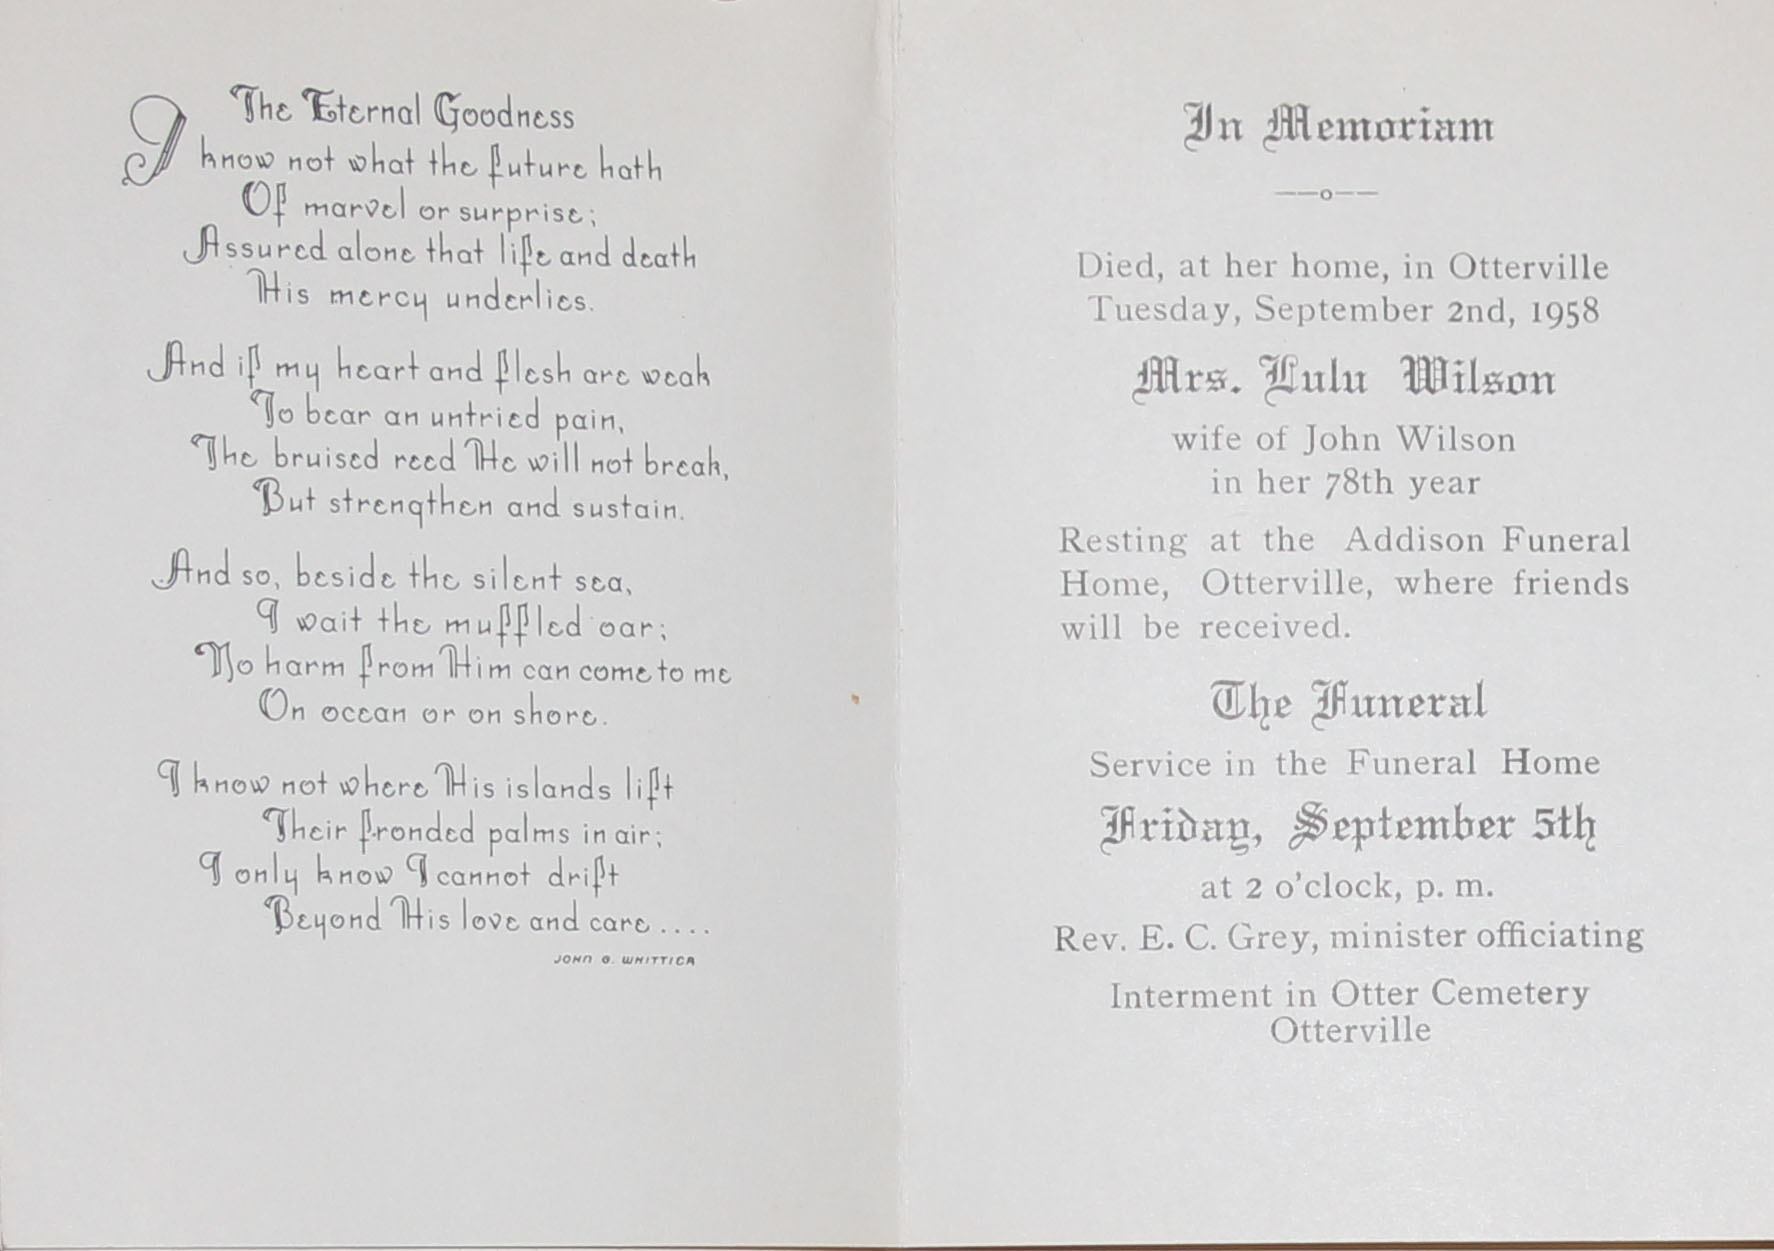 The Eternal Goodness
I know not what the future hath
Of marvel or surprise;
Assured alone that life and death
His mercy underlies.
And if my heart and flesh are weak
To bear an untried pain,
The bruised reed He will not break,
But strengthen and sustain.
And so, beside the silent sea,
I wait the muffled oar;
No harm from Him can come to me
On ocean or on shore.
I know not where His islands lift
Their fronded palms in air;
I only know I cannot drift
Beyond His love and care....
JOHN G. WHITTICR
In Memoriam
——o——
Died, at her home, in Otterville
Tuesday, September 2nd, 1958
Mrs. Lulu Wilson
wife of John Wilson
in her 78th year
Resting at the Addison Funeral
Home, Otterville, where friends
will be received.
The Funeral
Service in the Funeral Home
Friday, September 5th
at 2 o'clock, p. m.
Rev. E. C. Grey, minister officiating
Interment in Otter Cemetery
Otterville